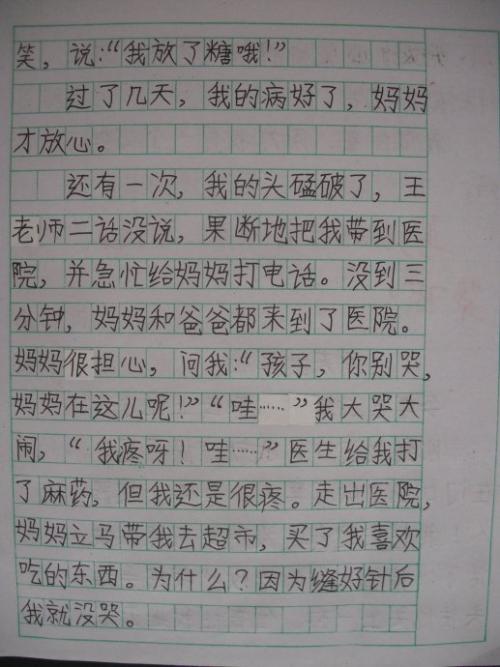 笑，说：“我放了糖哦！”
过了几天，我的病好了，妈妈
才放心。
还有一次，我的头磕破了，王
老师二话没说，果断地把我带到医
院，并急忙给妈妈打电话。没到三
分钟，妈妈和爸爸都来到了医院。
妈妈很担心，问我：“孩子，你别哭，
妈妈在这儿呢！”“哇……”我大哭大
闹，“我疼呀！哇……”医生给我打
了麻药，但我还是很疼。走出医院，
妈妈立马带我去超市，买了我喜欢
吃的东西。为什么？因为缝好针后
我就没哭。